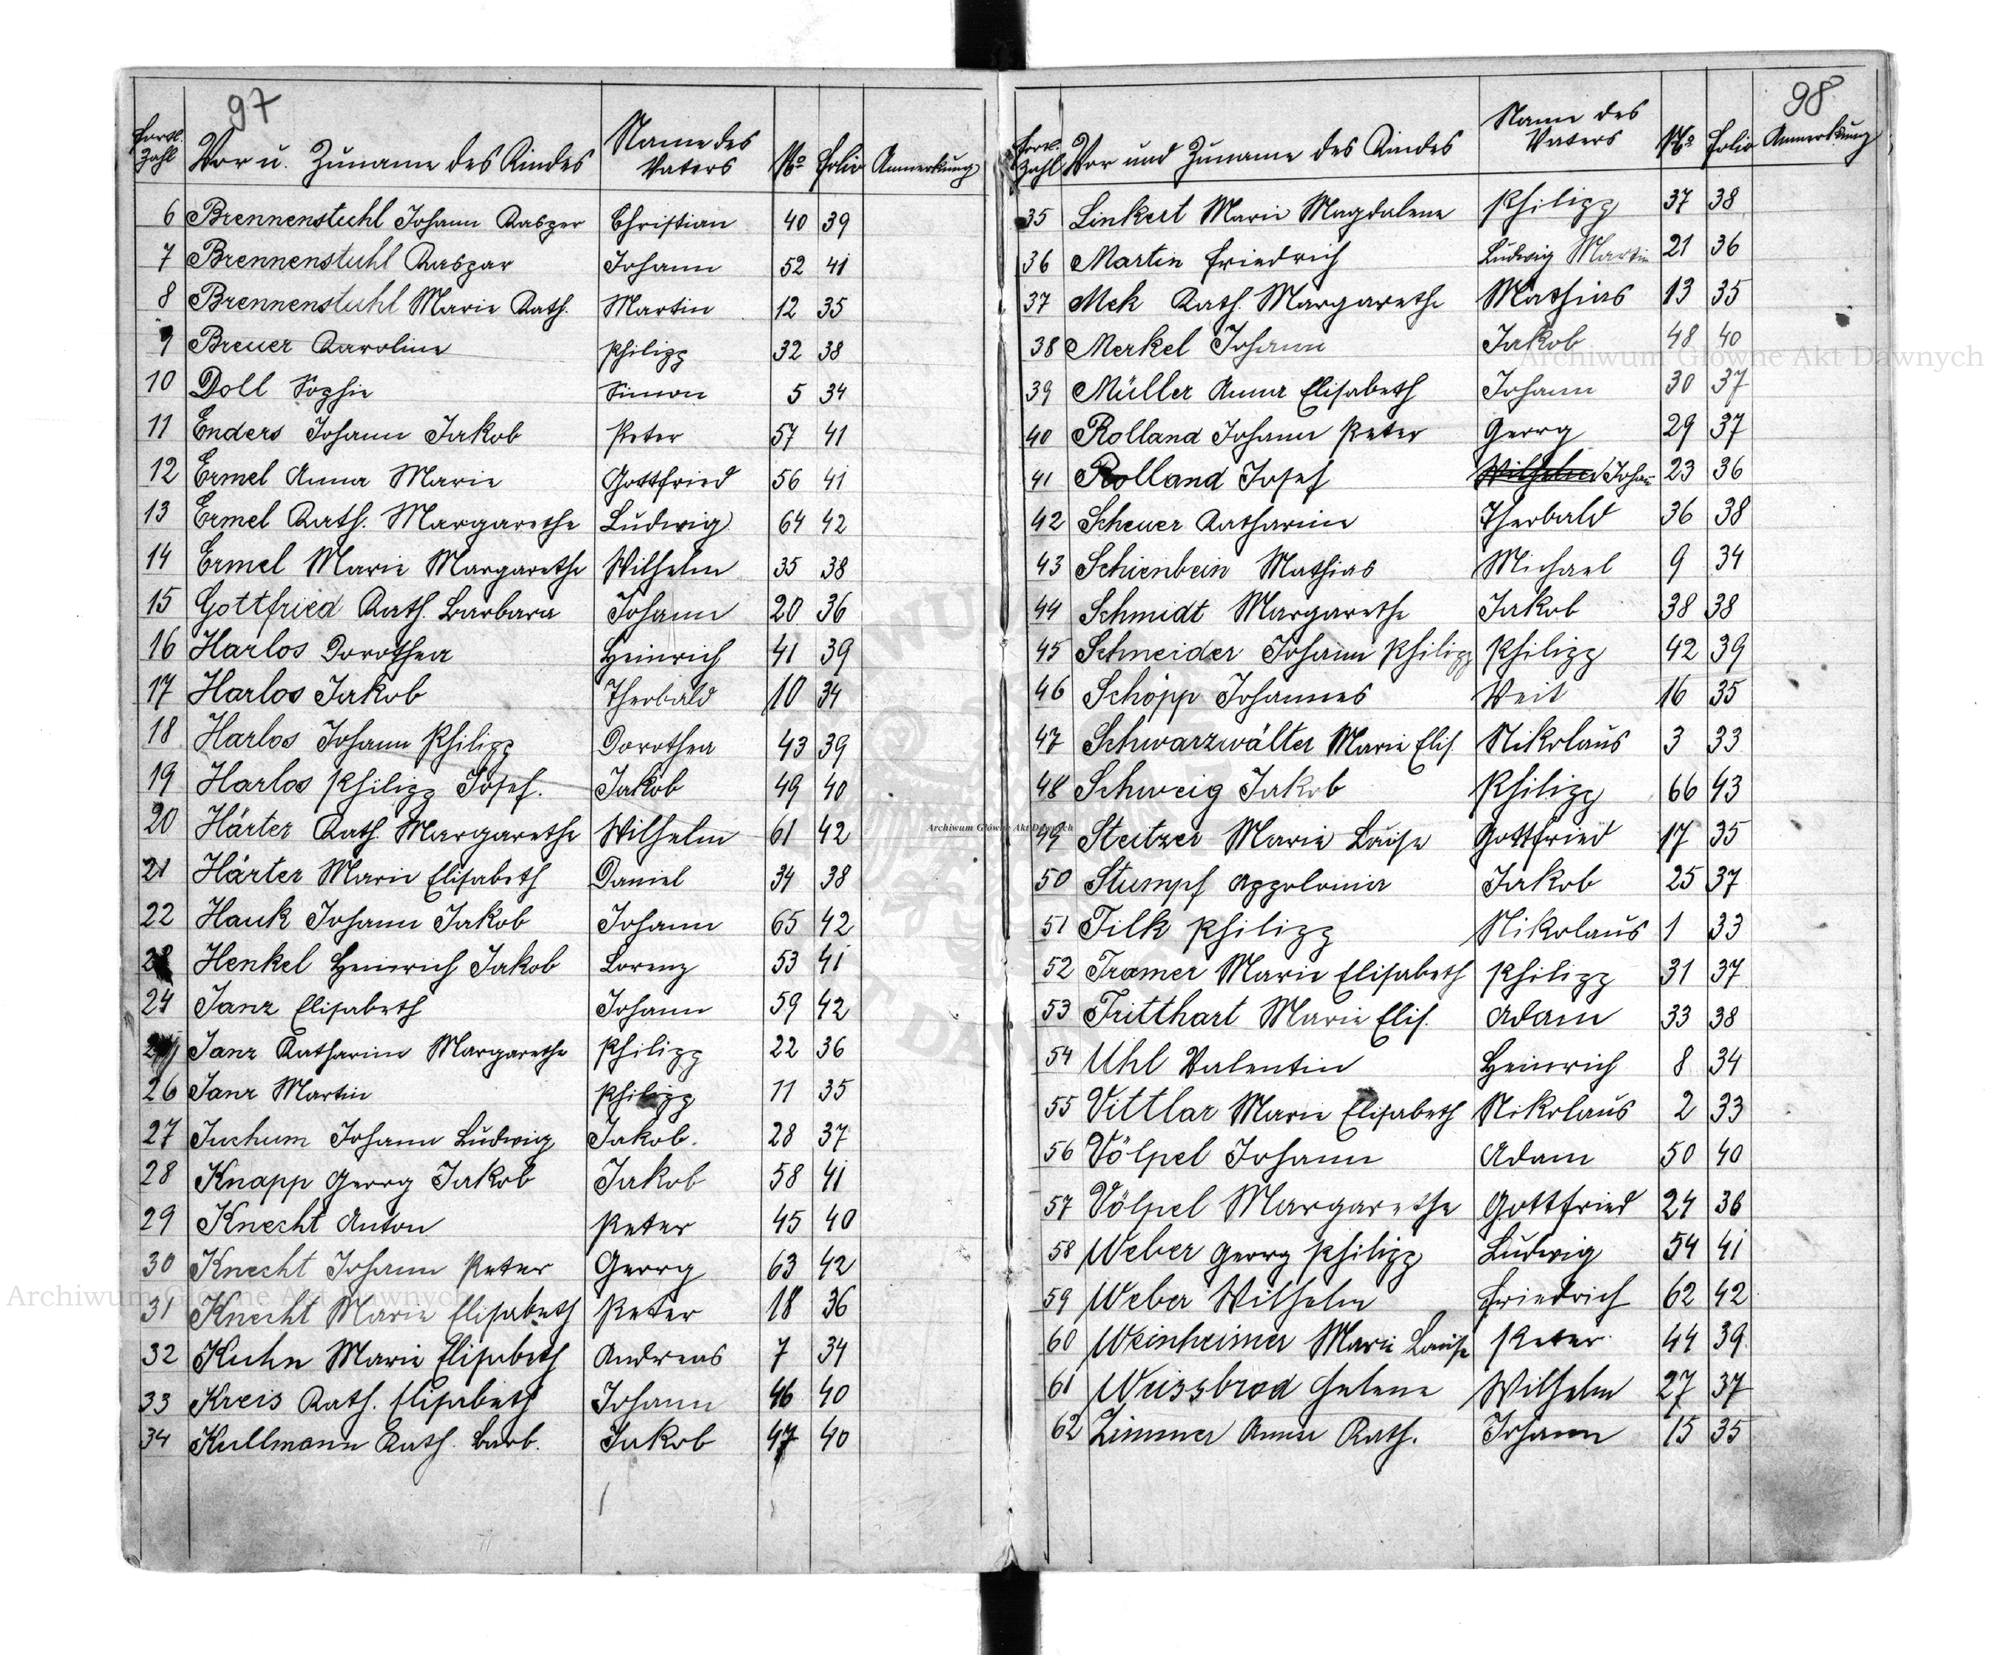 97
Fortl. Zahl Vor u. Zuname des Kindes Name des Vaters No Folio Anmerkung
6 Brennenstuhl Johann Kasper Christian 40 39
7 Brennenstuhl Kaspar Johann 52 41
8 Brennenstuhl Marie Kath. Martin 12 35
9 Breuer Karoline Philipp 32 38
10 Doll Sophie Simon 5 34
11 Enders Johann Jakob Peter 57 41
12 Ermel Anna Marie Gottfried 56 41
13 Ermel Kath. Margarethe Ludwig 64 42
14 Ermel Marie Margarethe Wilhelm 35 38
15 Gottfried Kath. Barbara Johann 20 36
16 Harlos Dorothea Heinrich 41 39
17 Harlos Jakob Theobald 10 34
18 Harlos Johann Philipp Dorothea 43 39
19 Harlos Philipp Josef. Jakob 49 40
20 Härter Kath. Margarethe Wilhelm 61 42
21 Härter Marie Elisabeth Daniel 34 38
22 Hauk Johann Jakob Johann 65 42
23 Henkel Heinrich Jakob Lorenz 53 41
24 Janz Elisabeth Johann 59 42
Janz Katharine Margarethe Philipp 22 36
26 Janz Martin Philipp 11 35
27 Juchum Johann Ludwig Jakob. 28 37
28 Knapp Georg Jakob Jakob 58 41
29 Knecht Anton Peter 45 40
30 Knecht Johann Peter Georg 63 42
31 Knecht Marie Elisabeth Peter 18 36
32 Kuhn Marie Elisabeth Andreas 7 34
33 Kreis Kath. Elisabeth Johann 46 40
34 Kullmann Kath. Barb. Jakob 47 40
98
Fortl. Zahl Vor und Zuname des Kindes Name des Vaters No Folio Anmerkung
35 Linkert Marie Magdalene Philipp 37 38
36 Martin Friedrich Ludwig Martin 21 36
37 Mek Kath. Margarethe Mathias 13 35
38 Merkel Johann Jakob 48 40
39 Müller Anna Elisabeth Johann 30 37
40 Rolland Johann Peter Georg 29 37
41 Rolland Josef Wilhelm Johann 23 36
42 Scheuer Katharine Theobald 36 38
43 Schienbein Mathias Michael 9 34
44 Schmidt Margarethe Jakob 38 38
45 Schneider Johann Philipp Philipp 42 39
46 Schöpp Johannes Veit 16 35
47 Schwarzwälter Marie Elis. Nikolaus 3 33
48 Schweig Jakob Philipp 66 43
49 Steitzer Marie Louise Gottfried 17 35
50 Stumpf Appolonia Jakob 25 37
51 Tilk Philipp Nikolaus 1 33
52 Tramer Marie Elisabeth Philipp 31 37
53 Tritthart Marie Elis. Adam 33 38
54 Uhl Valentin Heinrich 8 34
55 Vittlar Marie Elisabeth Nikolaus 2 33
56 Völpel Johann Adam 50 40
57 Völpel Margarethe Gottfried 24 36
58 Weber Georg Philipp Ludwig 54 41
59 Weber Wilhelm Friedrich 62 42
60 Weinheimer Marie Louise Peter 44 39
61 Weissbrod Helene Wilhelm 27 37
62 Zimmer Anna Kath. Johann 15 35
Archiwum Główne Akt Dawnych
Archiwum Główne Akt Dawnych
Archiwum Główne Akt Dawnych